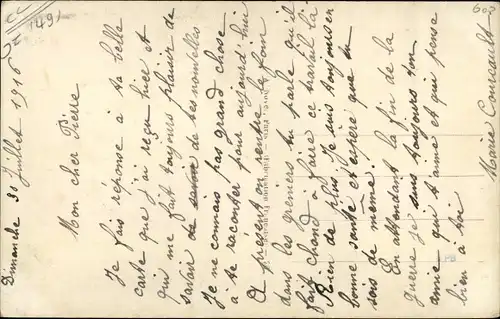 Dimanche 30 Juillet 1916
Mon cher Pierre
Je fais réponse à ta belle
carte que j'ai reçu hier et
qui me fait toujours plaisir de
savoir de tes nouvelles
Je ne connais pas grand chose
à te raconter pour aujourd'hui
A présent on rentre le foin
dans les greniers tu parle qu'il
fait chaud à faire ce travail là
Rien de plus Je suis toujours en
bonne santé et espère que tu
sois de même.
En attendant la fin de la
guerre je suis toujours ton
amie qui t'aime et qui pense
bien à toi
Marie
1491
609